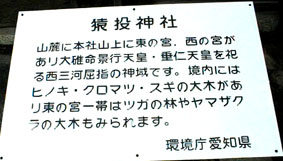 猿投神社
山麓に本社山上に東の宮．西の宮が
あり大碓命景行天皇・垂仁天皇を祀
る西三河屈指の神域です。境内には
ヒノキ・クロマツ・スギの大木があ
り東の宮一帯はツガの林やヤマザク
ラの大木もみられます。
環境庁愛知県